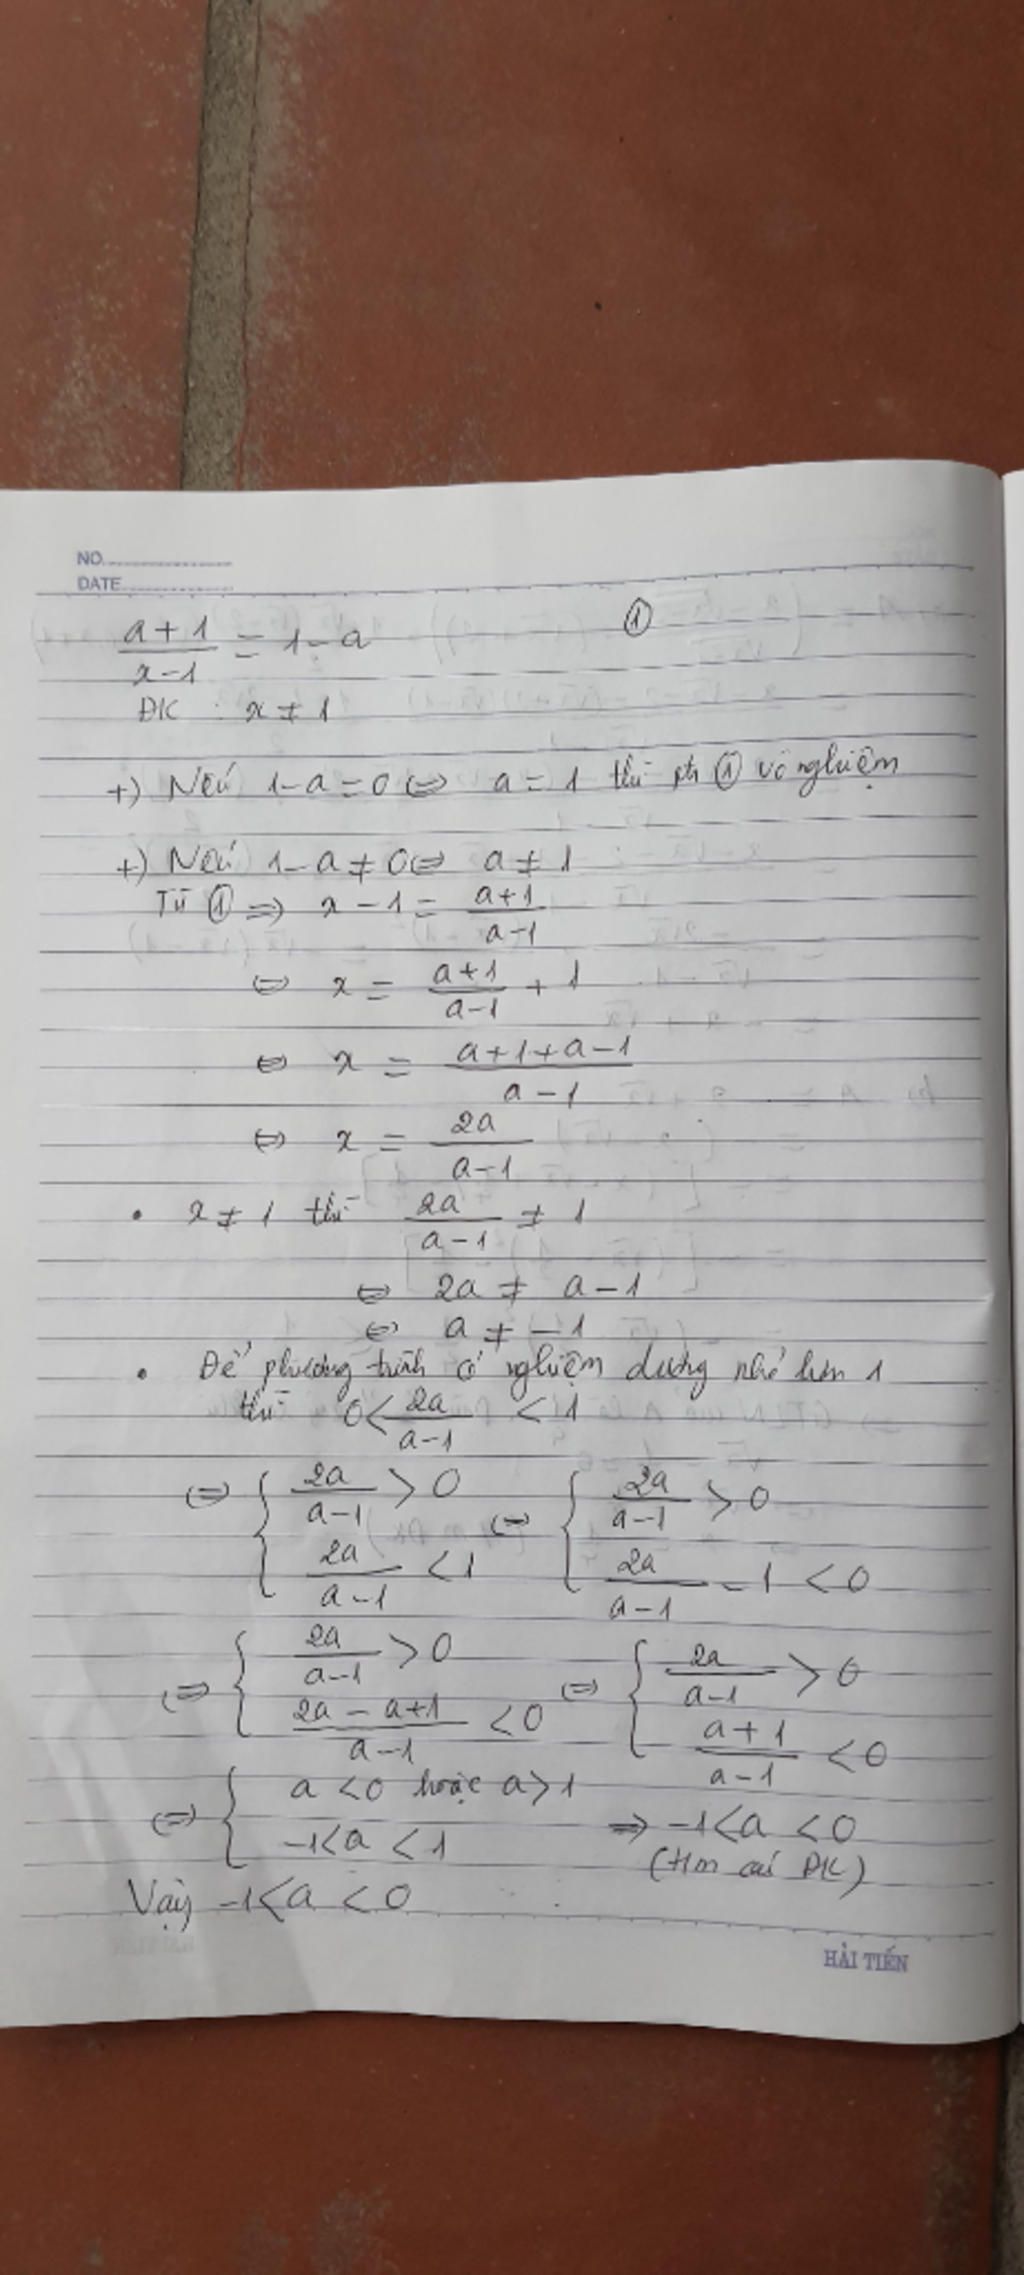 NO.
DATE
a+1/x-1 = 1-a ①
ĐK : x ≠ 1
+) Nếu 1-a=0 ⇔ a = 1 thì pt ① vô nghiệm
+) Nếu 1-a ≠ 0 ⇔ a ≠ 1
Từ ① ⇒ x - 1 = a+1/a-1
⇔ x = a+1/a-1 + 1
⇔ x = a+1+a-1/a-1
⇔ x = 2a/a-1
• x ≠ 1 thì 2a/a-1 ≠ 1
⇔ 2a ≠ a-1
⇔ a ≠ -1
• Để phương trình có nghiệm dương nhỏ hơn 1
thì 0 < 2a/a-1 < 1
⇔ { 2a/a-1 > 0 ⇔ { 2a/a-1 > 0
2a/a-1 < 1 2a/a-1 - 1 < 0
⇔ { 2a/a-1 > 0 ⇔ { 2a/a-1 > 0
2a-a+1/a-1 < 0 a+1/a-1 < 0
⇔ { a < 0 hoặc a > 1
-1 < a < 1 ⇒ -1 < a < 0
(Tm các ĐK)
Vậy -1 < a < 0
HẢI TIẾN